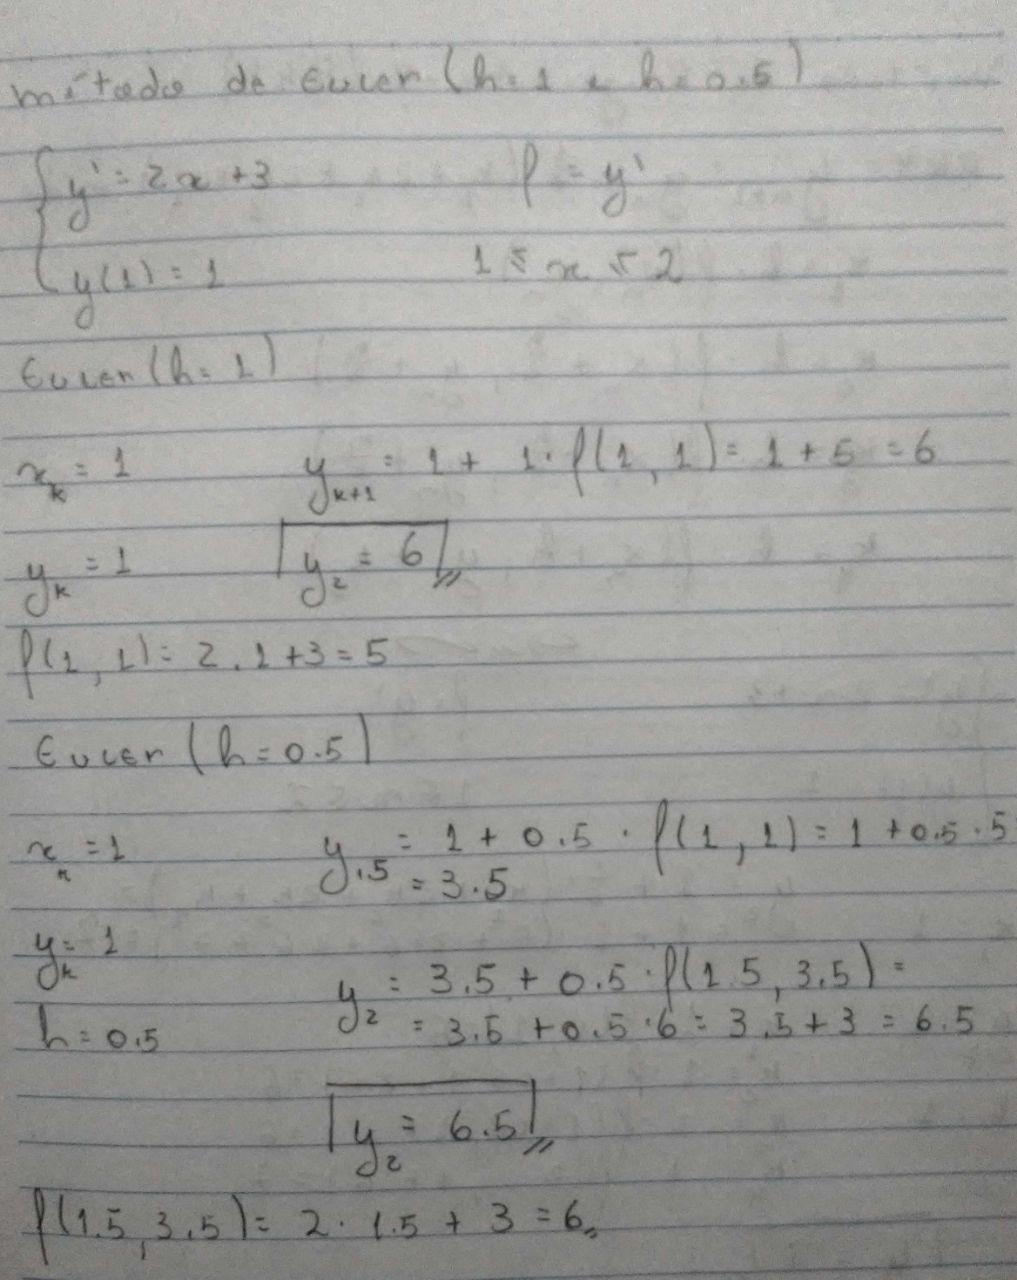 método de Euler (h=1 e h=0.5)
{ y' = 2x + 3 f = y'
y(1) = 1 1 ≤ x ≤ 2
Euler (h=1)
x_k = 1 y_{k+1} = 1 + 1 · f(1, 1) = 1 + 5 = 6
y_k = 1 y_2 = 6
f(1, 1) = 2 . 1 + 3 = 5
Euler (h=0.5)
x_k = 1 y_{1.5} = 1 + 0.5 · f(1, 1) = 1 + 0.5 · 5
= 3.5
y_k = 1 y_2 = 3.5 + 0.5 · f(1.5, 3.5) =
h = 0.5 = 3.5 + 0.5 · 6 = 3.5 + 3 = 6.5
y_2 = 6.5
f(1.5, 3.5) = 2 · 1.5 + 3 = 6.